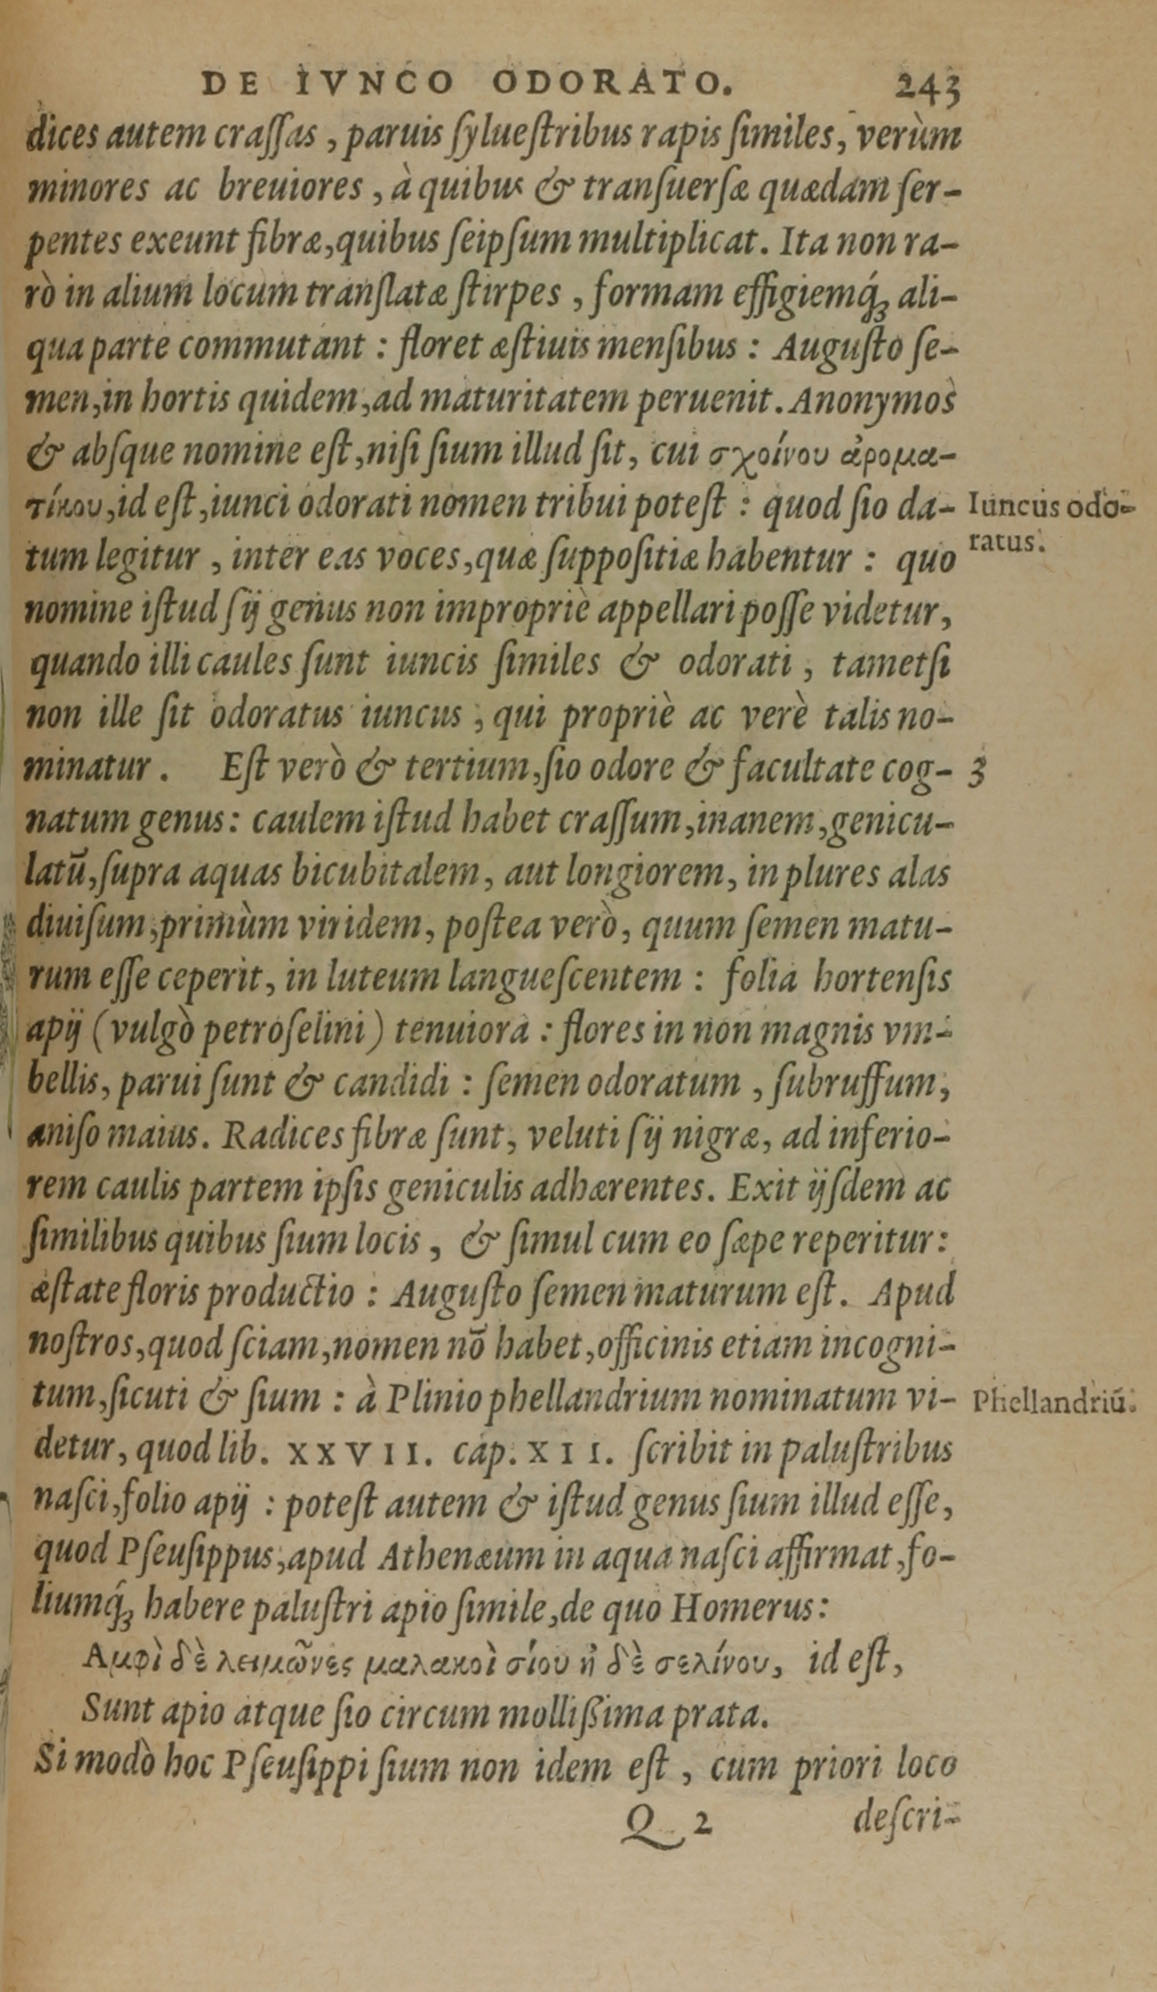 DE IVNCO ODORATO. 243
dices autem craſſas, paruis ſylueſtribus rapis ſimiles, verùm
minores ac breuiores, à quibus & tranſuerſæ quædam ſer-
pentes exeunt fibræ, quibus ſeipſum multiplicat. Ita non ra-
rò in alium locum tranſlatæ ſtirpes, formam effigiemq́ꝫ ali-
qua parte commutant: floret æſtiuis menſibus: Auguſto ſe-
men, in hortis quidem, ad maturitatem peruenit. Anonymos
& abſque nomine eſt, niſi ſium illud ſit, cui σχοίνου ἀρομα-
τίκου, id eſt, iunci odorati nomen tribui poteſt: quod ſio da-
Iuncus odo-
tum legitur, inter eas voces, quæ ſuppoſitiæ habentur: quo
ratus.
nomine iſtud ſij genus non impropriè appellari poſſe videtur,
quando illi caules ſunt iuncis ſimiles & odorati, tametſi
non ille ſit odoratus iuncus, qui propriè ac verè talis no-
minatur. Eſt verò & tertium, ſio odore & facultate cog-
3
natum genus: caulem iſtud habet craſſum, inanem, genicu-
latū, ſupra aquas bicubitalem, aut longiorem, in plures alas
diuiſum, primùm viridem, poſtea verò, quum ſemen matu-
rum eſſe ceperit, in luteum langueſcentem: folia hortenſis
apij (vulgò petroſelini) tenuiora: flores in non magnis vm-
bellis, parui ſunt & candidi: ſemen odoratum, ſubruffum,
aniſo maius. Radices fibræ ſunt, veluti ſij nigræ, ad inferio-
rem caulis partem ipſis geniculis adhærentes. Exit ijſdem ac
ſimilibus quibus ſium locis, & ſimul cum eo ſæpe reperitur:
æſtate floris productio: Auguſto ſemen maturum eſt. Apud
noſtros, quod ſciam, nomen nō habet, officinis etiam incogni-
tum, ſicuti & ſium: à Plinio phellandrium nominatum vi-
Phellandriū.
detur, quod lib. XXVII. cap. XII. ſcribit in paluſtribus
naſci, folio apij: poteſt autem & iſtud genus ſium illud eſſe,
quod Pſeuſippus, apud Athenæum in aqua naſci affirmat, fo-
liumq́ꝫ habere paluſtri apio ſimile, de quo Homerus:
Αμφὶ δὲ λειμῶνες μαλακοὶ σίου ἠ δὲ σελίνου, id eſt,
Sunt apio atque ſio circum molliſſima prata.
Si modò hoc Pſeuſippi ſium non idem eſt, cum priori loco
Q 2
deſcri-